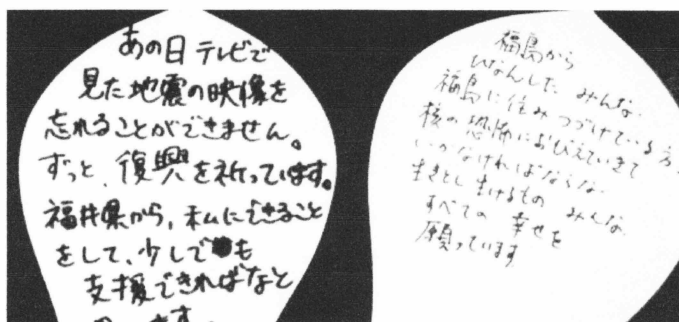 あの日テレビで
見た地震の映像を
忘れることができません。
ずっと、復興を祈っています。
福井県から、私にできること
をして、少しでも
支援できればなと
福島から
ひなんした みんな、
福島に住みつづけている方、
核の恐怖におびえていきて
いかなければならな
生きとし生けるもの みんな、
すべての 幸せを
願っています